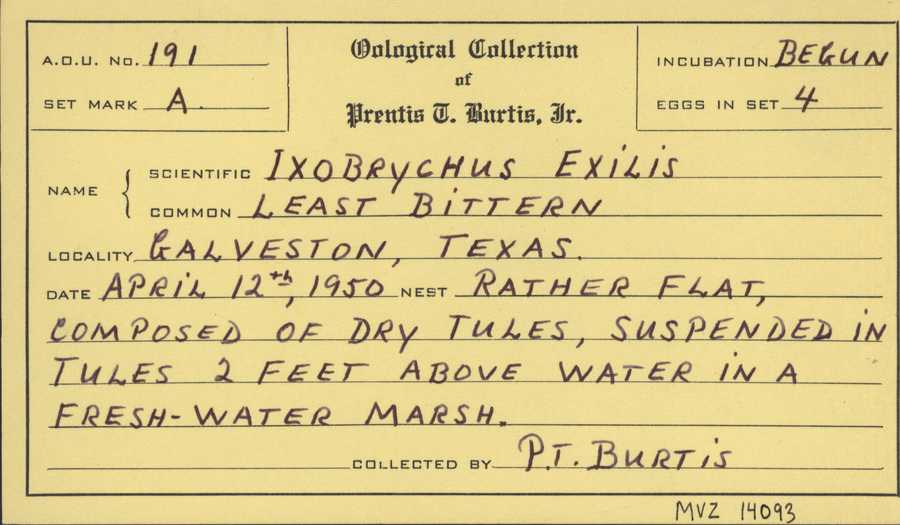 A.O.U. No. 191
SET MARK A.
Oological Collection
of
Prentis T. Burtis, Jr.
INCUBATION BEGUN
EGGS IN SET 4
NAME
SCIENTIFIC IXOBRYCHUS EXILIS
COMMON LEAST BITTERN
LOCALITY GALVESTON, TEXAS.
DATE APRIL 12th, 1950 NEST RATHER FLAT,
COMPOSED OF DRY TULES, SUSPENDED IN
TULES 2 FEET ABOVE WATER IN A
FRESH-WATER MARSH.
COLLECTED BY P.T. BURTIS
MVZ 14093